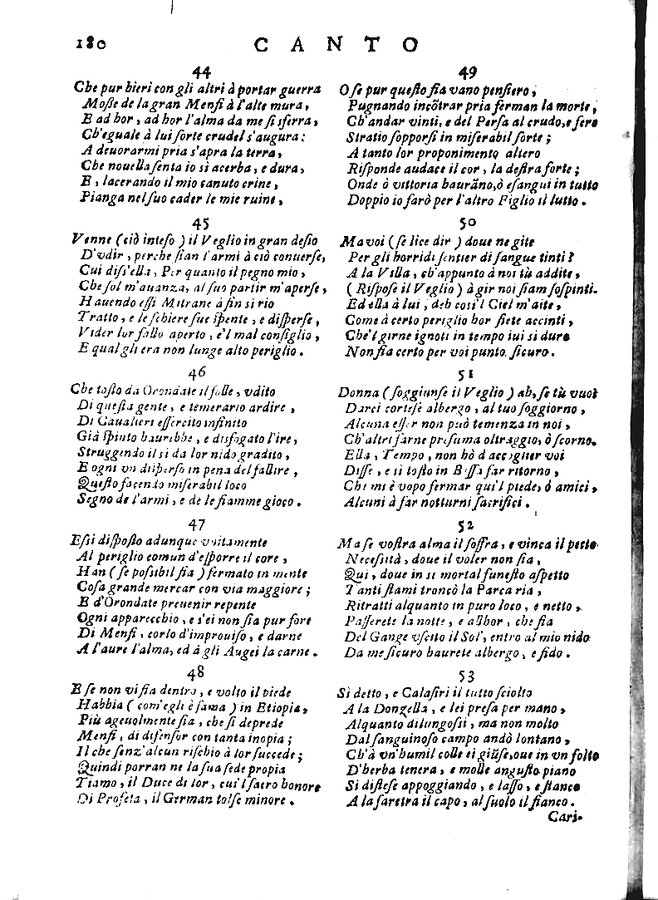 180 CANTO
44
Che pur hieri con gli altri à portar guerra
Mosse de la gran Menfi à l'alte mura,
E ad hor, ad hor l'alma da me si sferra,
Ch'eguale à lui sorte crudel s'augura:
A devorarmi pria s'apra la terra,
Che novella senta io si acerba, e dura,
E, lacerando il mio canuto crine,
Pianga nel suo cader le mie ruine,
45
Venne (ciò inteso) il Veglio in gran desio
D'udir, perche sian l'armi à ciò converse,
Cui diss'ella, Per quanto il pegno mio,
Che sol m'avanza, al suo partir m'aperse,
Havendo essi Mitrane à fin sì rio
Tratto, e le schiere sue spente, e disperse,
Vider lor fallo aperto, e'l mal consiglio,
E qual gli era non lunge alto periglio.
46
Che tosto da Orondate il folle, udito
Di questa gente, e temerario ardire,
Di Cavalieri essercito infinito
Già spinto haurebbe, e disfogato l'ire,
Struggendo il sì da lor nido gradito,
E ogni un disperso in pena del fallire,
Questo facendo miserabil loco
Segno de l'armi, e de le fiamme gioco.
47
Essi disposto adunque unitamente
Al periglio comun d'esporre il core,
Han (se possibil fia) fermato in mente
Cosa grande mercar con via maggiore;
E d'Orondate prevenir repente
Ogni apparecchio, e s'ei non fia pur fore
Di Menfi, corlo d'improviso, e darne
A l'aure l'alma, ed à gli Augei la carne.
48
E se non vi fia dentro, e volto il piede
Habbia (com'egli è fama) in Etiopia,
Più agevolmente fia, che si deprede
Menfi, di difensor con tanta inopia;
Il che senz'alcun rischio à lor succede;
Quindi porran ne la sua sede propia
Tiamo, il Duce di lor, cui'l sacro honore
Di Profeta, il German tolse minore.
49
O se pur questo fia vano pensiero,
Pugnando incõtrar pria ferman la morte,
Ch'andar vinti, e del Persa al crudo, e fero
Stratio sopporsi in miserabil sorte;
A tanto lor proponimento altero
Risponde audace il cor, la destra forte;
Onde ò vittoria haurãno, ò esangui in tutto
Doppio io farò per l'altro Figlio il lutto.
50
Ma voi (se lice dir) dove ne gite
Per gli horridi sentier di sangue tinti?
A la Villa, ch'appunto à noi tù addite,
(Rispose il Veglio) à gir noi siam sospinti.
Ed ella à lui, deh così'l Ciel m'aite,
Come à certo periglio hor siete accinti,
Che'l girne ignoti in tempo iui sì duro
Non fia certo per voi punto sicuro.
51
Donna (soggiunse il Veglio) ah, se tù vuoi
Darci cortese albergo, al tuo soggiorno,
Alcuna esser non può temenza in noi,
Ch'altri farne presuma oltraggio, ò scorno.
Ella, Tempo, non hò d'accoglier voi
Disse, e sì tosto in Bessa far ritorno,
Che mi è vopo fermar qui'l piede, ò amici,
Alcuni à far notturni sacrifici.
52
Ma se vostra alma il soffra, e vinca il petto
Necessità, dove il voler non fia,
Qui, dove in sì mortal funesto aspetto
Tanti stami troncò la Parca ria,
Ritratti alquanto in puro loco, e netto,
Passerete la notte, e allhor, che fia
Del Gange uscito il Sol, entro al mio nido
Da me sicuro haurete albergo, e fido.
53
Sì detto, e Calasiri il tutto sciolto
A la Donzella, e lei presa per mano,
Alquanto dilungossi, ma non molto
Dal sanguinoso campo andò lontano,
Ch'à un'humil colle ei giũse, ove in un folto
D'herba tenera, e molle angusto piano
Si distese appoggiando, e lasso, e stanco
A la faretra il capo, al suolo il fianco.
Cari-